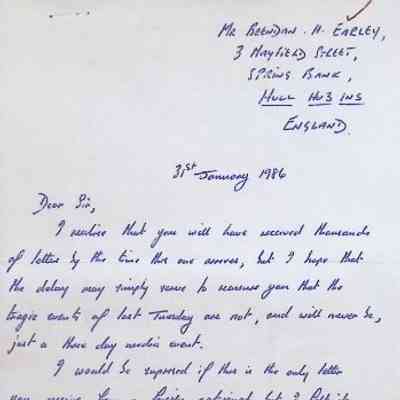 Mr Brendan. H. Earley,
3 Mayfield Street,
Spring Bank,
Hull Hu3 1NS
England.
31st January 1986
Dear Sir,
I realise that you will have received thousands
of letters by the time this one arrives, but I hope that
the delay may simply serve to reassure you that the
tragic events of last Tuesday are not, and will never be,
just a three day media event.
I would be surprised if this is the only letter
you receive from a foreign national but I felt it